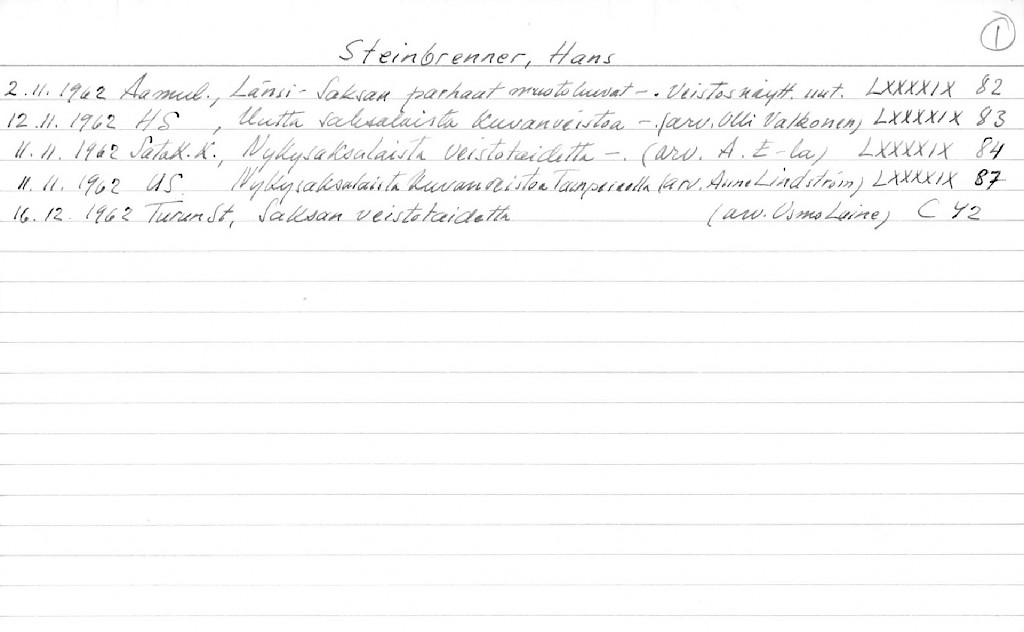 1
Steinbrenner, Hans
2.11.1962 Aamul., Länsi-Saksan parhaat muotokuvat -. Veistosnäytt. uut. LXXXXIX 82
12.11.1962 HS, Uutta saksalaista kuvanveistoa -. (arv. Olli Valkonen) LXXXXIX 83
11.11.1962 Satak.K., Nykysaksalaista veistotaidetta -. (arv. A. E-la) LXXXXIX 84
11.11.1962 US. Nykysaksalaista kuvanveistoa Tampereella (arv. Aune Lindström) LXXXXIX 87
16.12.1962 TurunSt, Saksan veistotaidetta (arv. Osmo Laine) C 42